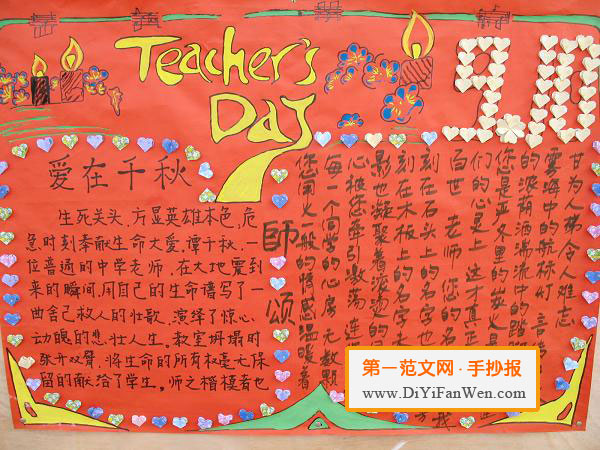 Teacher's
Day
9.10
爱在千秋
生死关头,方显英雄本色,危
急时刻奉献生命大爱,谭千秋,一
位普通的中学老师,在大地震到
来的瞬间,用自己的生命谱写了一
曲舍己救人的壮歌,演绎了惊心
动魄的悲壮人生。教室坍塌时
张开双臂,将生命的所有权毫无保
留的献给了学生。师之楷模者也
師頌
您用火一般的情感温暖着
每一个同学的心房 无数颗
心被您牵引激荡 连
影也凝聚着滚烫的
刻在木板上的名字未
刻在石头上的名字也
百世 老师 您的名
们的心是上 这才真正
您是严冬里的炭火是
的波荫洒满流中的踏
雾海中的航标灯 言语
甘为人梯令人难忘
第一范文网·手抄报
www.DiYiFanWen.com